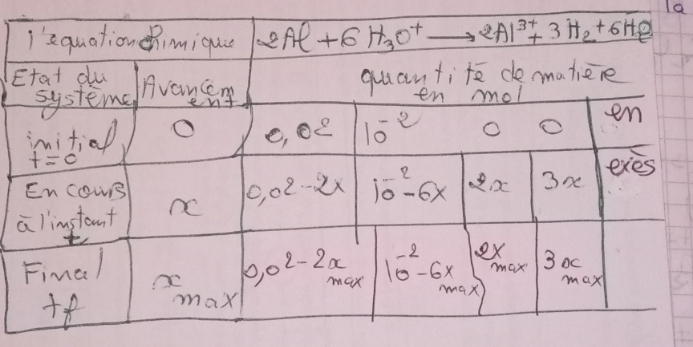 1a
l'equation chimique 2Al + 6 H₃O⁺ → 2Al³⁺ + 3 H₂ + 6H₂O
Etat du système Avancement quantité de matière en mol
initial t=0 0 0,02 10⁻² 0 0 en
En cours à l'instant t x 0,02-2x 10⁻²-6x 2x 3x exès
Final tf x max 0,02-2x max 10⁻²-6x max 2x max 3x max